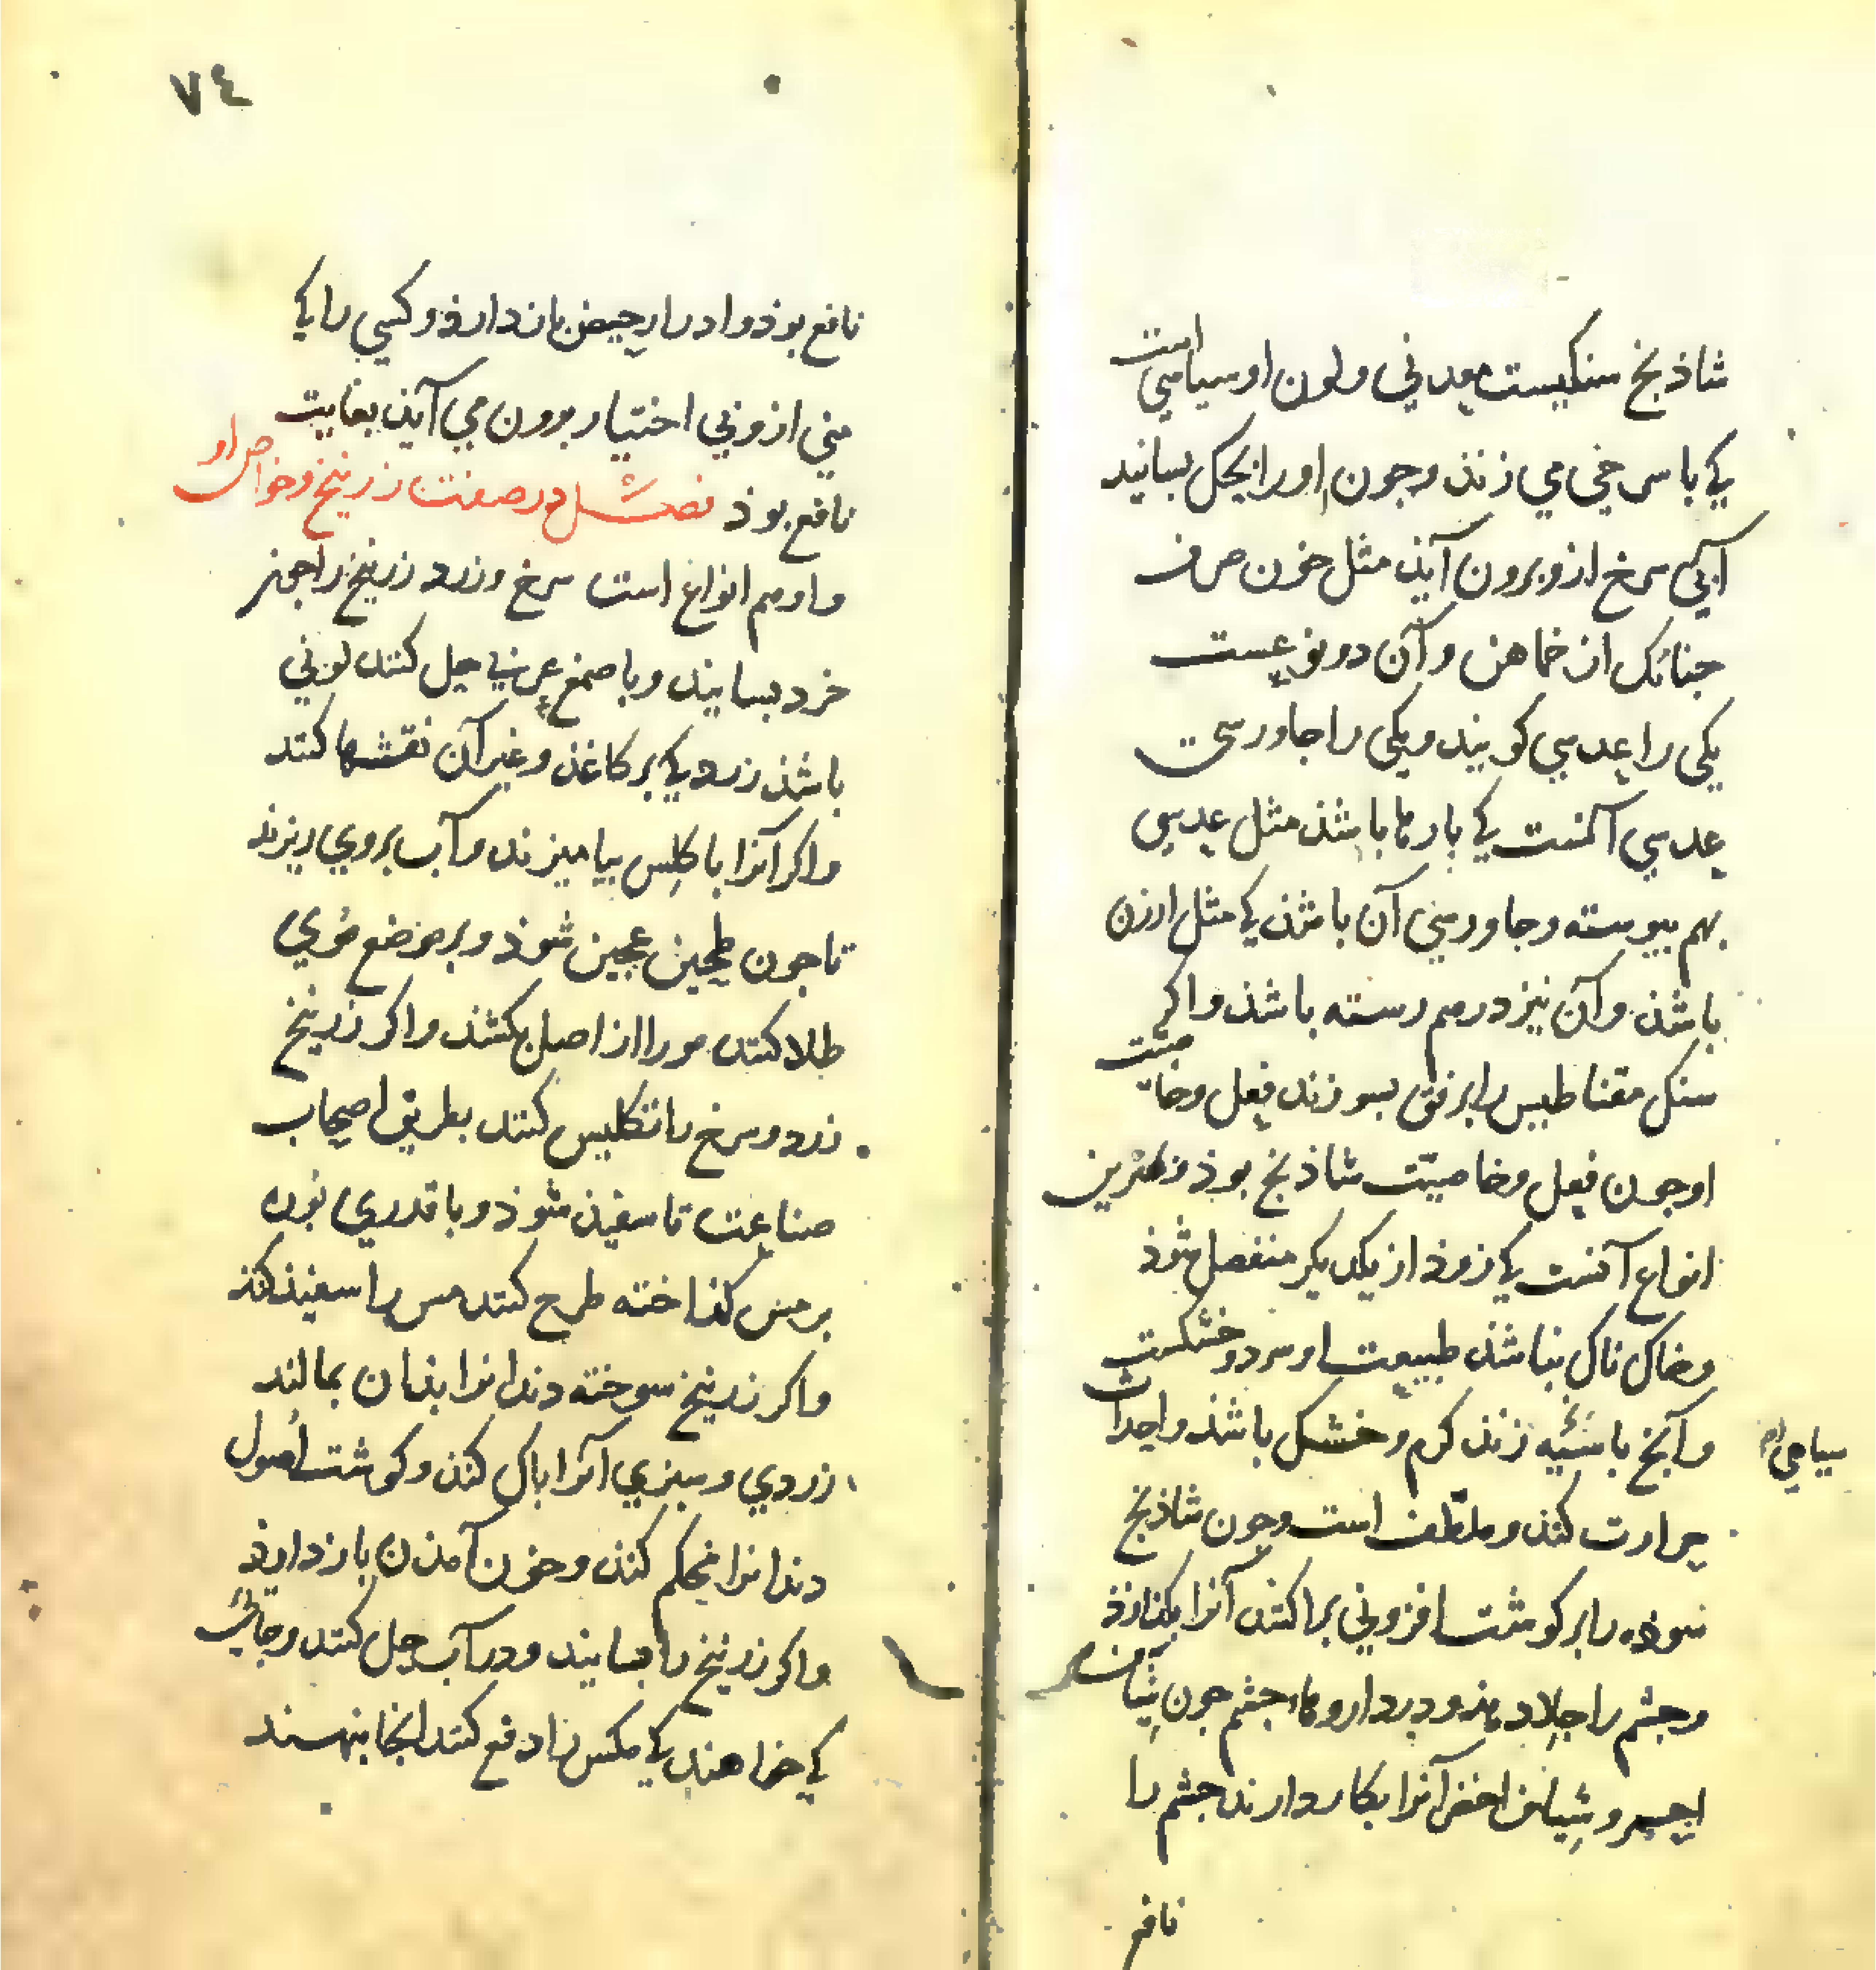 شاذنج سنکیست معدنی ولون او سیاهی است
کی با سرخی می زند وجون او را بحکل بسایند
آبی سرخ ازو برون آید مثل خون صرف
جنانک از خماهن وآن دو نوعست
یکی را عدسی کویند ویکی را جاورسی
عدسی آنست کی بارها باشذ مثل عدس
بهم بیوسته وجاورسی آن باشذ کی مثل ارزن
باشذ وآن نیز درهم رسته باشذ واکر
سنک مقناطیس را برفق بسوزند فعل وخاصیت
او جون فعل وخاصیت شاذنج بوذ وبهترین
انواع آنست کی زوذ از یکدیکر منفصل شوذ
وخاک ناک نباشذ طبیعت او سرد وخشکست
وآنج با سیه زند کرم وخشک باشذ واحداث
سیاهی
حرارت کند وملطف است وجون شاذنج
سوده را بر کوشت افزونی براکنند آنرا بکذارذ
وجشم را جلا دهذ ودر داروها جشم جون شیاف
احمر وشیاف اخضر آنرا بکار دارند جشم را
نافع
٧٤
نافع بوذ وادرار حیض بازدارذ وکسی را کی
منی ازو بی اختیار برون می آید بغایت
نافع بوذ فصل در صفت زرنیخ وخواص او
واوهم انواع است سرخ وزرد زرنیخ را جون
خرد بسایند وبا صمغ عربی حل کنند لونی
باشذ زرد کی بر کاغذ وغیر آن نقشها کنند
واکر آنرا با کلس بیامیزند وآب بروی ریزند
تا جون طحین عجین شوذ وبر موضع موی
طلا کنند مو را از اصل بکشذ واکر زرنیخ
زرد وسرخ را تکلیس کنند بطریق اصحاب
صناعت تا سفیذ شوذ وبا قدری بوره
بر مس کذاخته طرح کنند مس را سفیذ کند
واکر زرنیخ سوخته دندانرا بذان بمالند
زردی وسبزی آنرا باک کند وکوشت اصول
دندانرا محکم کند وخون آمذن بازدارذ
واکر زرنیخ را بسایند ودر آب حل کنند وجائی
کی خواهند کی مکس را دفع کنند آنجا بنهند